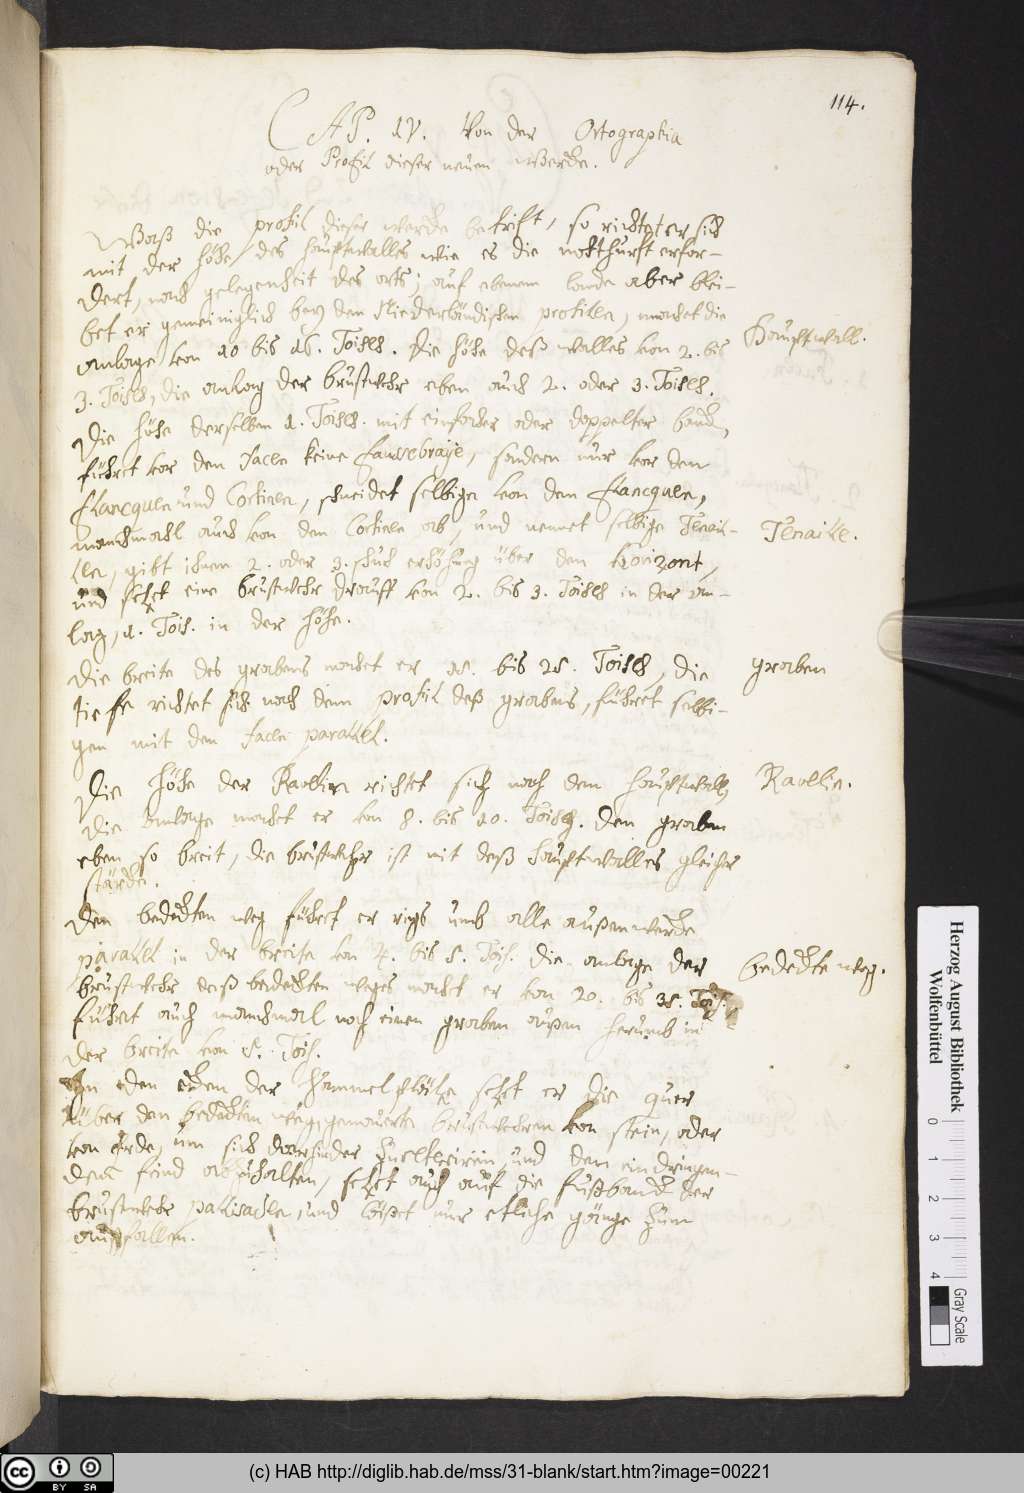 114.
CAP. IV. Von der Ortographia
oder Profil dieser neuen Wercke.
Waß die profil dieser wercke betrift, so richtet er sich
mit der höhe des hauptwalles wie es die nohtturft erfor-
dert, nach gelegenheit des orts; auf ebenem lande aber blei-
bet er gemeiniglich bey den Niederländischen profillen, machet die
anlage von 10 bis 16. Toises. die höhe deß walles von 2. bis
Hauptwall.
3. Toises, die anlag der brustwehr eben auch 2. oder 3. Toises.
Die höhe derselben 1. Toises. mit einfacher oder doppelter banck,
führet vor den facen keine faussebraye, sondern nur vor den
flancquen und Cortinen, schneidet selbige von den flancquen,
manchmahl auch von den Cortinen ab, und nennet selbige Tenail-
Tenaille.
len, gibt ihnen 2. oder 3. schuh erhöhung über den Horizont,
und setzt eine brustwehr drauff von 2. bis 3. Toises in der an-
lag, 1. Tois. in der höhe.
Die breite des grabens machet er 15. bis 25. Toises, die
graben
tieffe richtet sich nach dem profil deß grabens, führet selbi-
gen mit den facen parallel.
Die höhe der Ravelin richtet sich nach dem hauptwall,
Ravelin.
die anlage machet er von 8. bis 10. Toises. den graben
eben so breit, die brustwehr ist mit deß hauptwalles gleicher
stärcke.
Den bedeckten weg führet er rings umb alle außenwercke
parallel in der breite von 4. bis 5. Tois. die anlage der
bedeckte weg.
brustwehr deß bedeckten weges machet er von 20. bis 35. Tois.
führet auch manchmal noch einen graben außen herumb in
der breite von 5. Tois.
In den der setzt er die quer
über den bedeckten weg, gemauerte brustwehren von stein, oder
von erde, um sich darhinder und den eindringen-
den feind abzuhalten, setzt auch auf die fußbanck der
brustwehr pallisaden, und läßet nur etliche gänge zum
außfallen.
Herzog August Bibliothek
Wolfenbüttel
0 1 2 3 4
Gray Scale
cc BY SA
(c) HAB http://diglib.hab.de/mss/31-blank/start.htm?image=00221